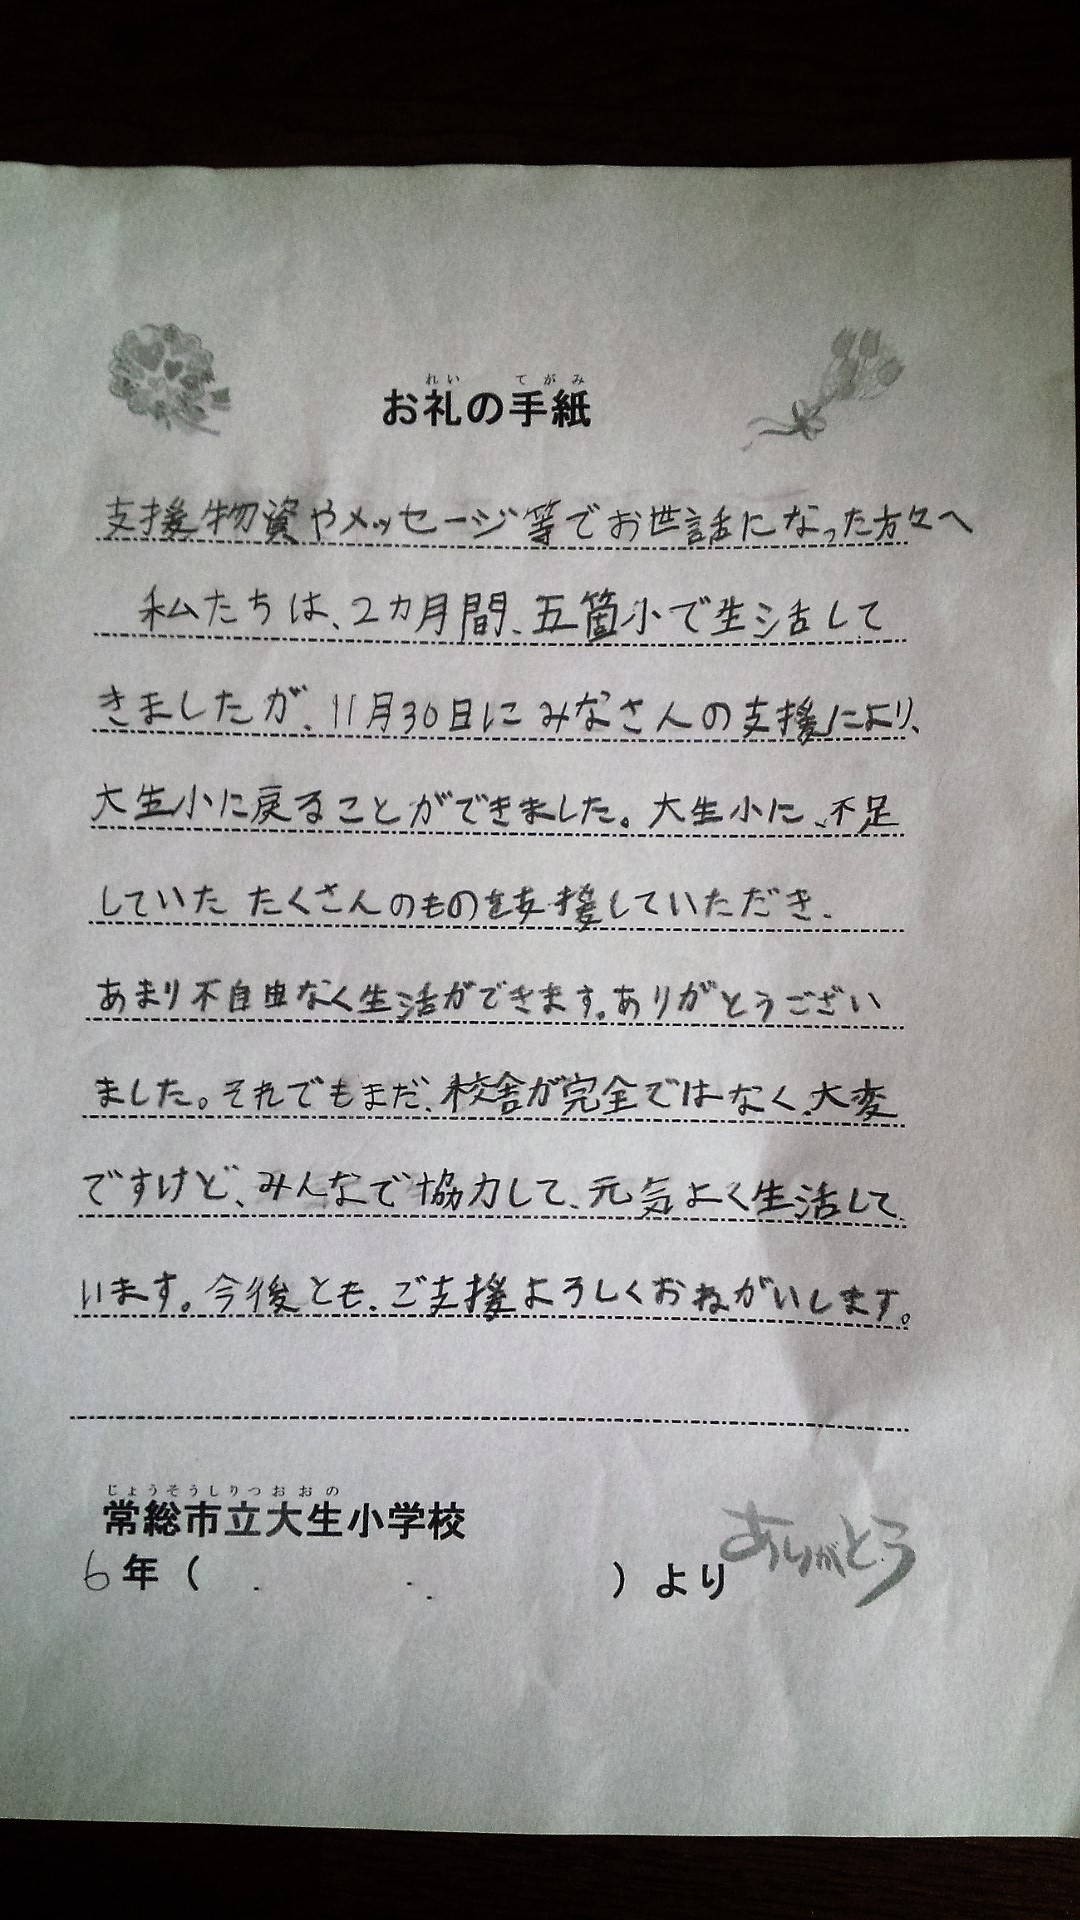 れい てがみ
お礼の手紙
支援物資やメッセージ等でお世話になった方々へ
私たちは、2カ月間、五箇小で生活して
きましたが、11月30日にみなさんの支援により、
大生小に戻ることができました。大生小に、不足
していた たくさんのものを支援していただき、
あまり不自由なく生活ができます。ありがとうござい
ました。それでもまだ、校舎が完全ではなく、大変
ですけど、みんなで協力して、元気よく生活して
います。今後とも、ご支援よろしくおねがいします。
じょうそうしりつおおの
常総市立大生小学校
6年（ ）より
ありがとう